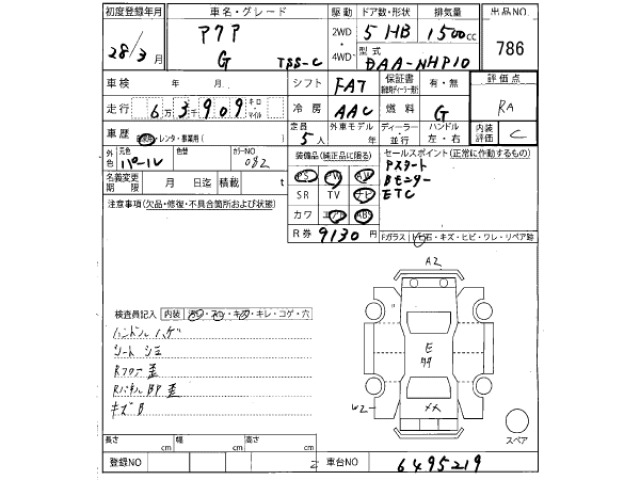 初度登録年月 車名・グレード 駆動 ドア数・形状 排気量 出品NO.
28/3月 アクア 2WD・4WD 5 HB 1500cc 786
G TSS-C 型式 DAA-NHP10
車検 年 月 シフト FAT 保証書 有・無 評価点
走行 6万3千909キロ・マイル 冷房 AAC 燃料 G RA
車歴 自家用・レンタ・事業用( ) 定員 5人 外車モデル 年 ディーラー・並行 ハンドル 左・右 内装評価 C
外色 元色 パール 色替 カラーNO 082 装備品(純正品に限る) セールスポイント(正常に作動するもの)
PS PW AW Pスタート
名義変更期限 月 日迄 積載 t SR TV ナビ Bモニター
注意事項(欠品・修復・不具合箇所および状態) カワ エアB ABS ETC
R券 9130円 Fガラス 飛石・キズ・ヒビ・ワレ・リペア跡
A2
検査員記入 内装 ・キレ・コゲ・穴
ハンドルハゲ
シートシミ
Rフロア歪
RパネルBP歪
キズB
E
W2
スペア
長さ cm 幅 cm 高さ cm
登録NO 車台NO 6495219